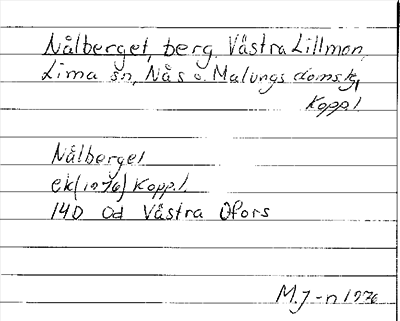 Nålberget, berg. Västra Lillmon,
Lima sn, Nås o. Malungs domsg,
Koppl.
Nålberget
ek(1976) Koppl.
14D 0d Västra Ofors
M.J-n 1976